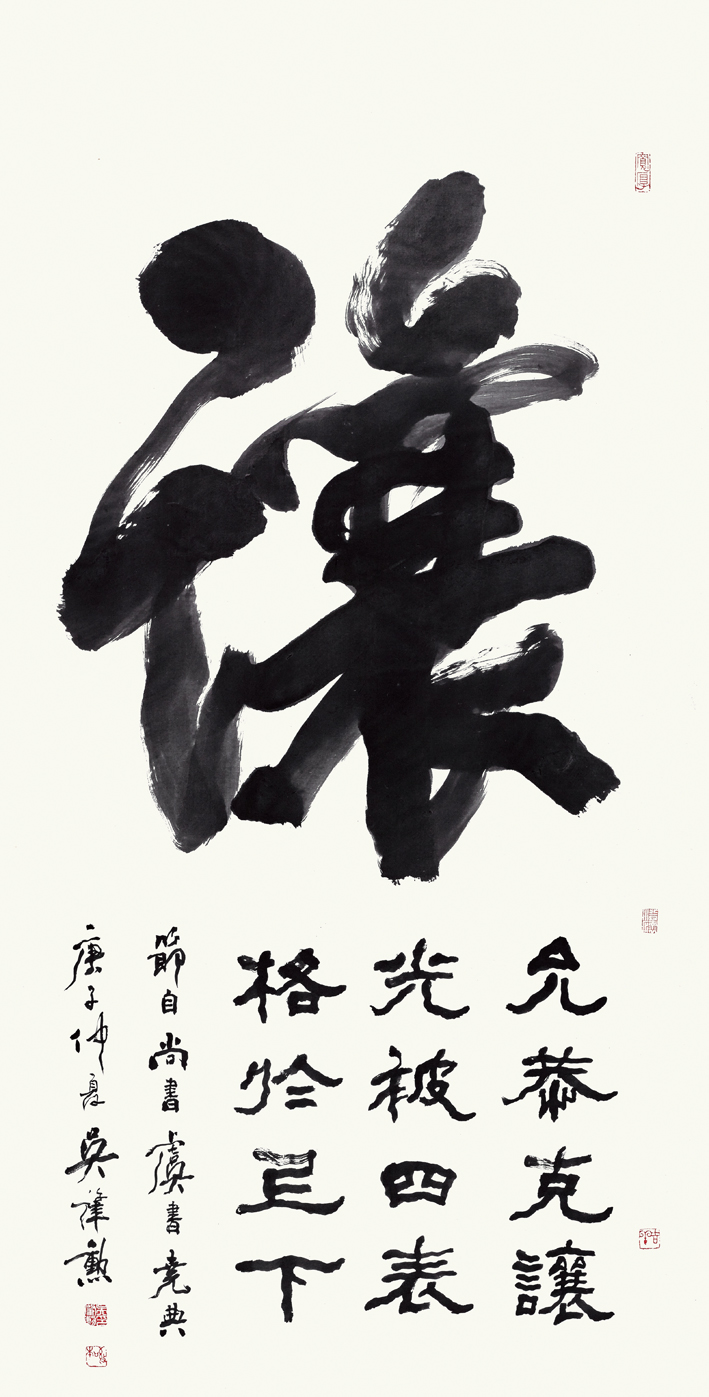 讓
允恭克讓
光被四表
格於下
節自尚書虞書堯典
庚子仲夏吳勳